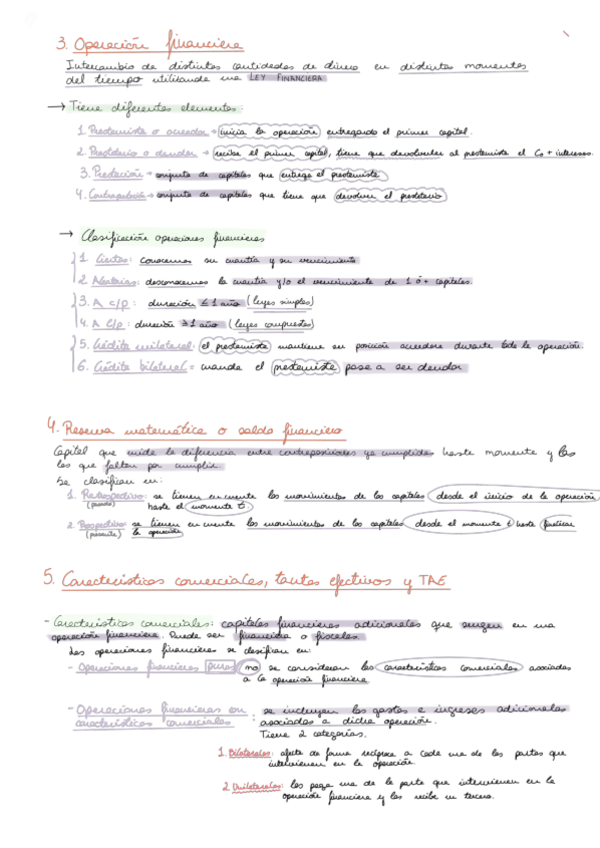 3. Operación financiera
Intercambio de distintas cantidades de dinero en distintos momentos
del tiempo utilizando una LEY FINANCIERA
→ Tiene diferentes elementos:
1. Prestamista o acreedor → inicia la operación entregando el primer capital.
2. Prestatario o deudor → recibe el primer capital, tiene que devolverle al prestamista el Co + intereses.
3. Prestación → conjunto de capitales que entrega el prestamista
4. Contraprestación → conjunto de capitales que tiene que devolver el prestatario
→ Clasificación operaciones financieras
1. Ciertas: conocemos su cuantía y su vencimiento
2. Aleatorias: desconocemos la cuantía y/o el vencimiento de 1 ó + capitales.
3. A c/p: duración ≤ 1 año (leyes simples)
4. A l/p: duración ≥ 1 año (leyes compuestas)
5. Crédito unilateral: el prestamista mantiene su posición acreedora durante toda la operación.
6. Crédito bilateral = cuando el prestamista pasa a ser deudor
4. Reserva matemática o saldo financiero
Capital que mide la diferencia entre contraposiciones ya cumplidas hasta momento y las
las que faltan por cumplir.
Se clasifican en:
1. Retrospectivo: se tienen en cuenta los movimientos de los capitales desde el inicio de la operación
(pasado) hasta el momento t.
2. Prospectivo: se tienen en cuenta los movimientos de los capitales desde el momento t hasta finalizar
la operación
5. Características comerciales, tantos efectivos y TAE
- Características comerciales: capitales financieros adicionales que surgen en una
operación financiera. Puede ser financiera o fiscales.
Las operaciones financieras se clasifican en:
- Operaciones financieras puras no se consideran las características comerciales asociadas
a la operación financiera
- Operaciones financieras con : se incluyen los gastos e ingresos adicionales
características comerciales asociados a dicha operación.
Tiene 2 categorías.
1. Bilaterales: afecta de forma recíproca a cada una de las partes que
intervienen en la operación.
2. Unilaterales: los paga una de la parte que intervienen en la
operación financiera y los recibe un tercero.